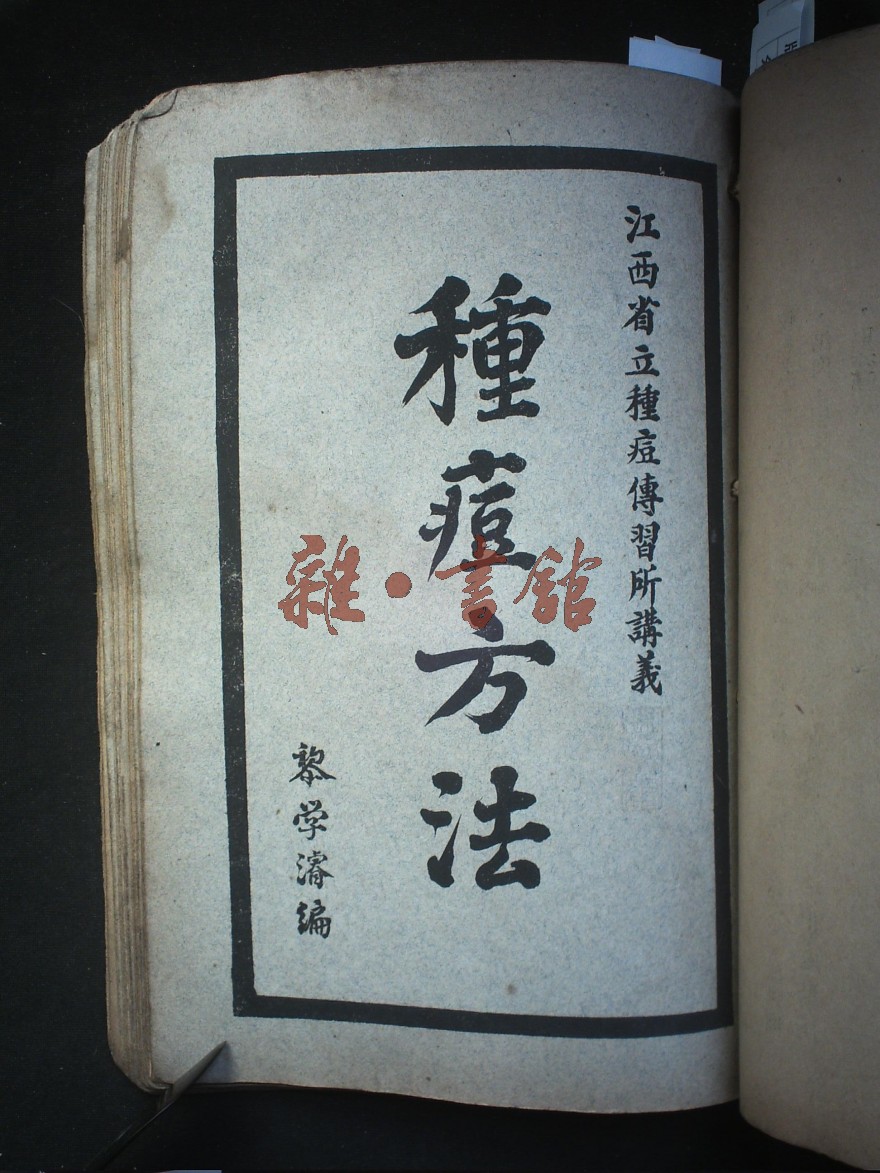 江西省立種痘傳習所講義
種痘方法
黎学濬編
雜·書館